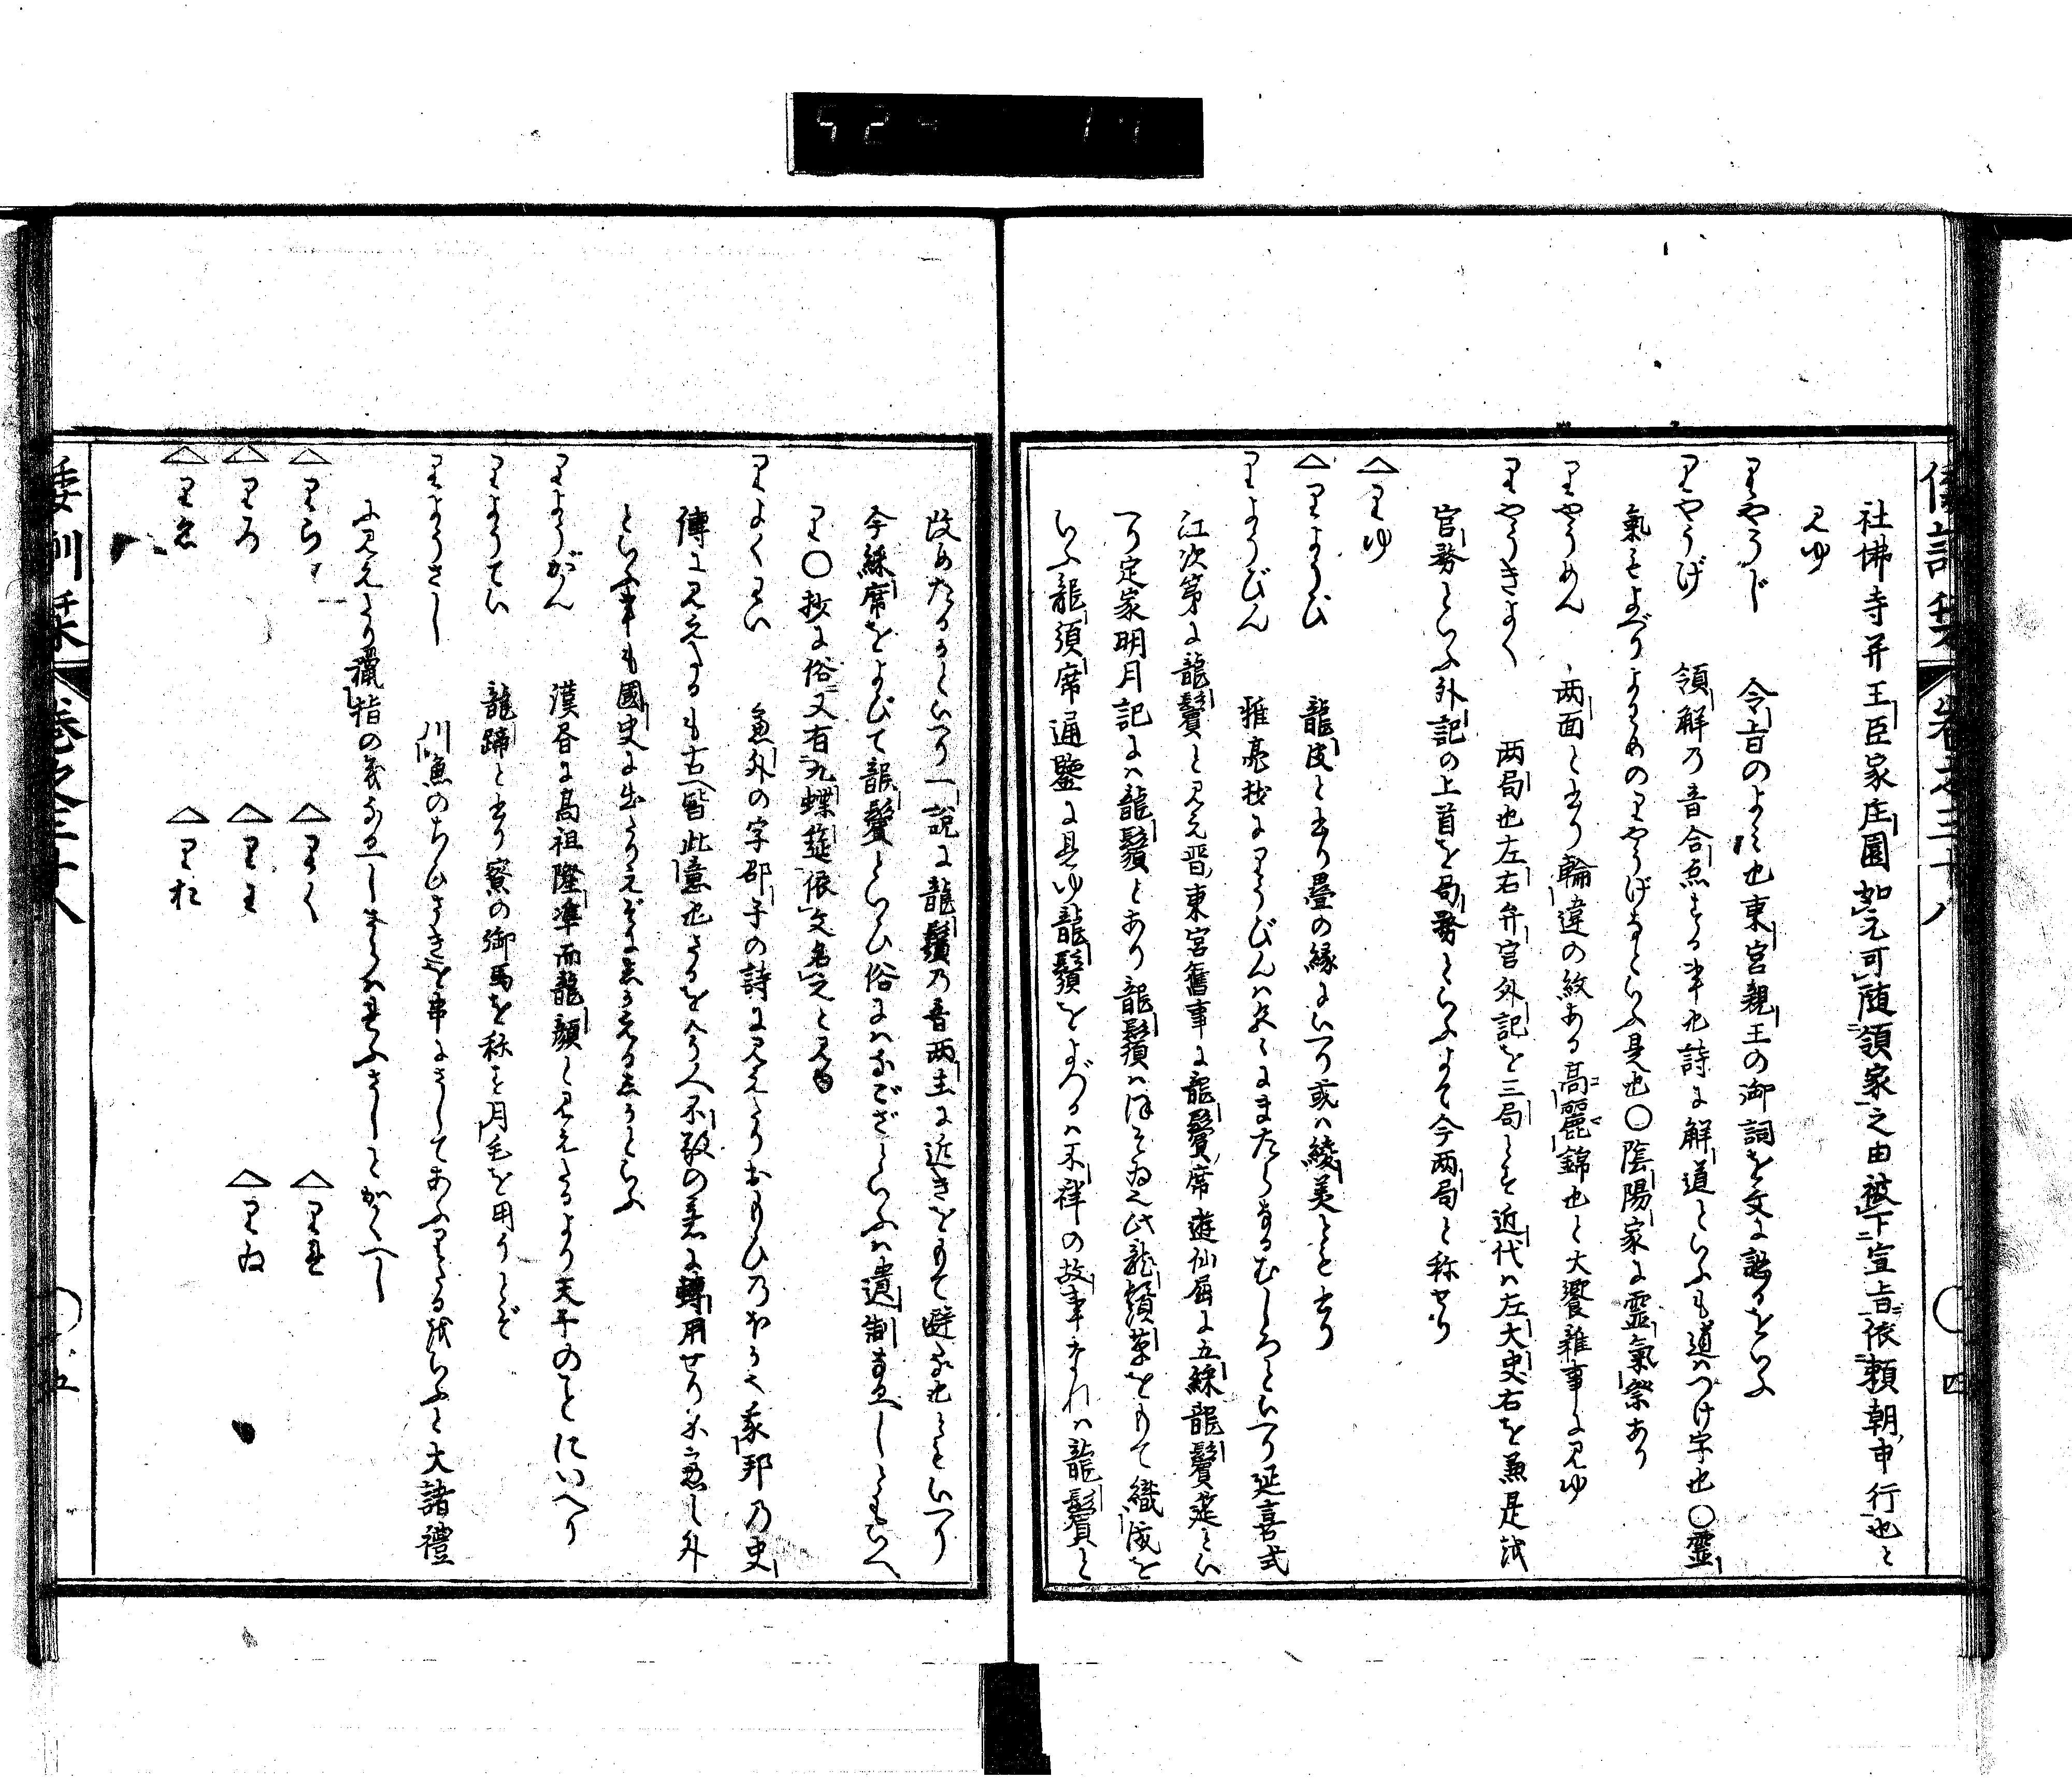 社佛寺并王臣家庄園如元可随領家之由被下宣旨依頼朝申行也と
見ゆ
りやうじ 令旨のよみ也東宮親王の御詞を文に誌るをいふ
りやうげ 領解乃音合点する事也詩に解道といふも道はつけ字也○霊
氣をよべりよりめのりやうげなといふ是也○陰陽家に霊氣祭あり
りやうめん 両面と書り輪違の紋ある高麗錦也と大饗雑事に見ゆ
りやうきよく 両局也左右弁官外記を三局とす近代は左大史右を兼是故
官務といふ外記の上首を局務といふよて今両局と称せり
△りゆ
△りようひ 龍皮と書り畳の縁にいへり或は綾美ともと書り
りようびん 雅亮抄にりうびんは
延喜式
江次第に龍鬢と見え晋東宮舊事に龍鬢席遊仙窟に五綵龍鬢莚とい
へり定家明月記には龍鬚とあり龍鬚は
龍鬚草をもて織成を
いふ龍須席通鑒に見ゆ龍鬚をよべるは不祥の故事なれは龍鬢と
改めたるかといへり一説に龍鬚乃音両主に近きをもて避る也ともいへり
今綵席をよびて龍鬢といひ俗にはなござといふは遺制なるへしともいへ
り○抄に俗又有九蝶莚依文名之と見ゆ
りよくわい 慮外の字邵子の詩に見えたりおもひの外
我邦乃史
傳に見えたるも古へ皆此意也さるを今人不敬の義に轉用せり
といふ事も國史に出たり
といふ
りようがん 漢各に高祖隆準而龍顔と見えたるより天子のことにいへり
りようてい 龍蹄と書り寮の御馬を称す月毛を用うとぞ
りようさし 川魚のちひさきを串にさしてあふりたる
いふと大諸禮
に見えたり獵指の義なるへし
さしとかくへし
△りら △りく △りれ
△りろ △りわ △りゐ
△りゑ △りお
倭訓栞 巻之三十八 ○四
倭訓栞 巻之三十八 ○五